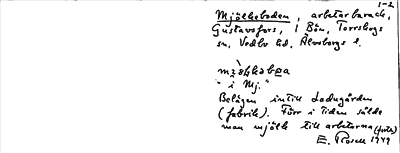 1-2
Mjölkeboden, arbetarbarack,
Gustavsfors, i Bön, Torrskogs
sn, Vedbo hd, Älvsborgs l.
"i Mj."
Belägen intill Ladugården
(fabrik). Förr i tiden sålde
man mjölk till arbetarna
E. Rosell 1949